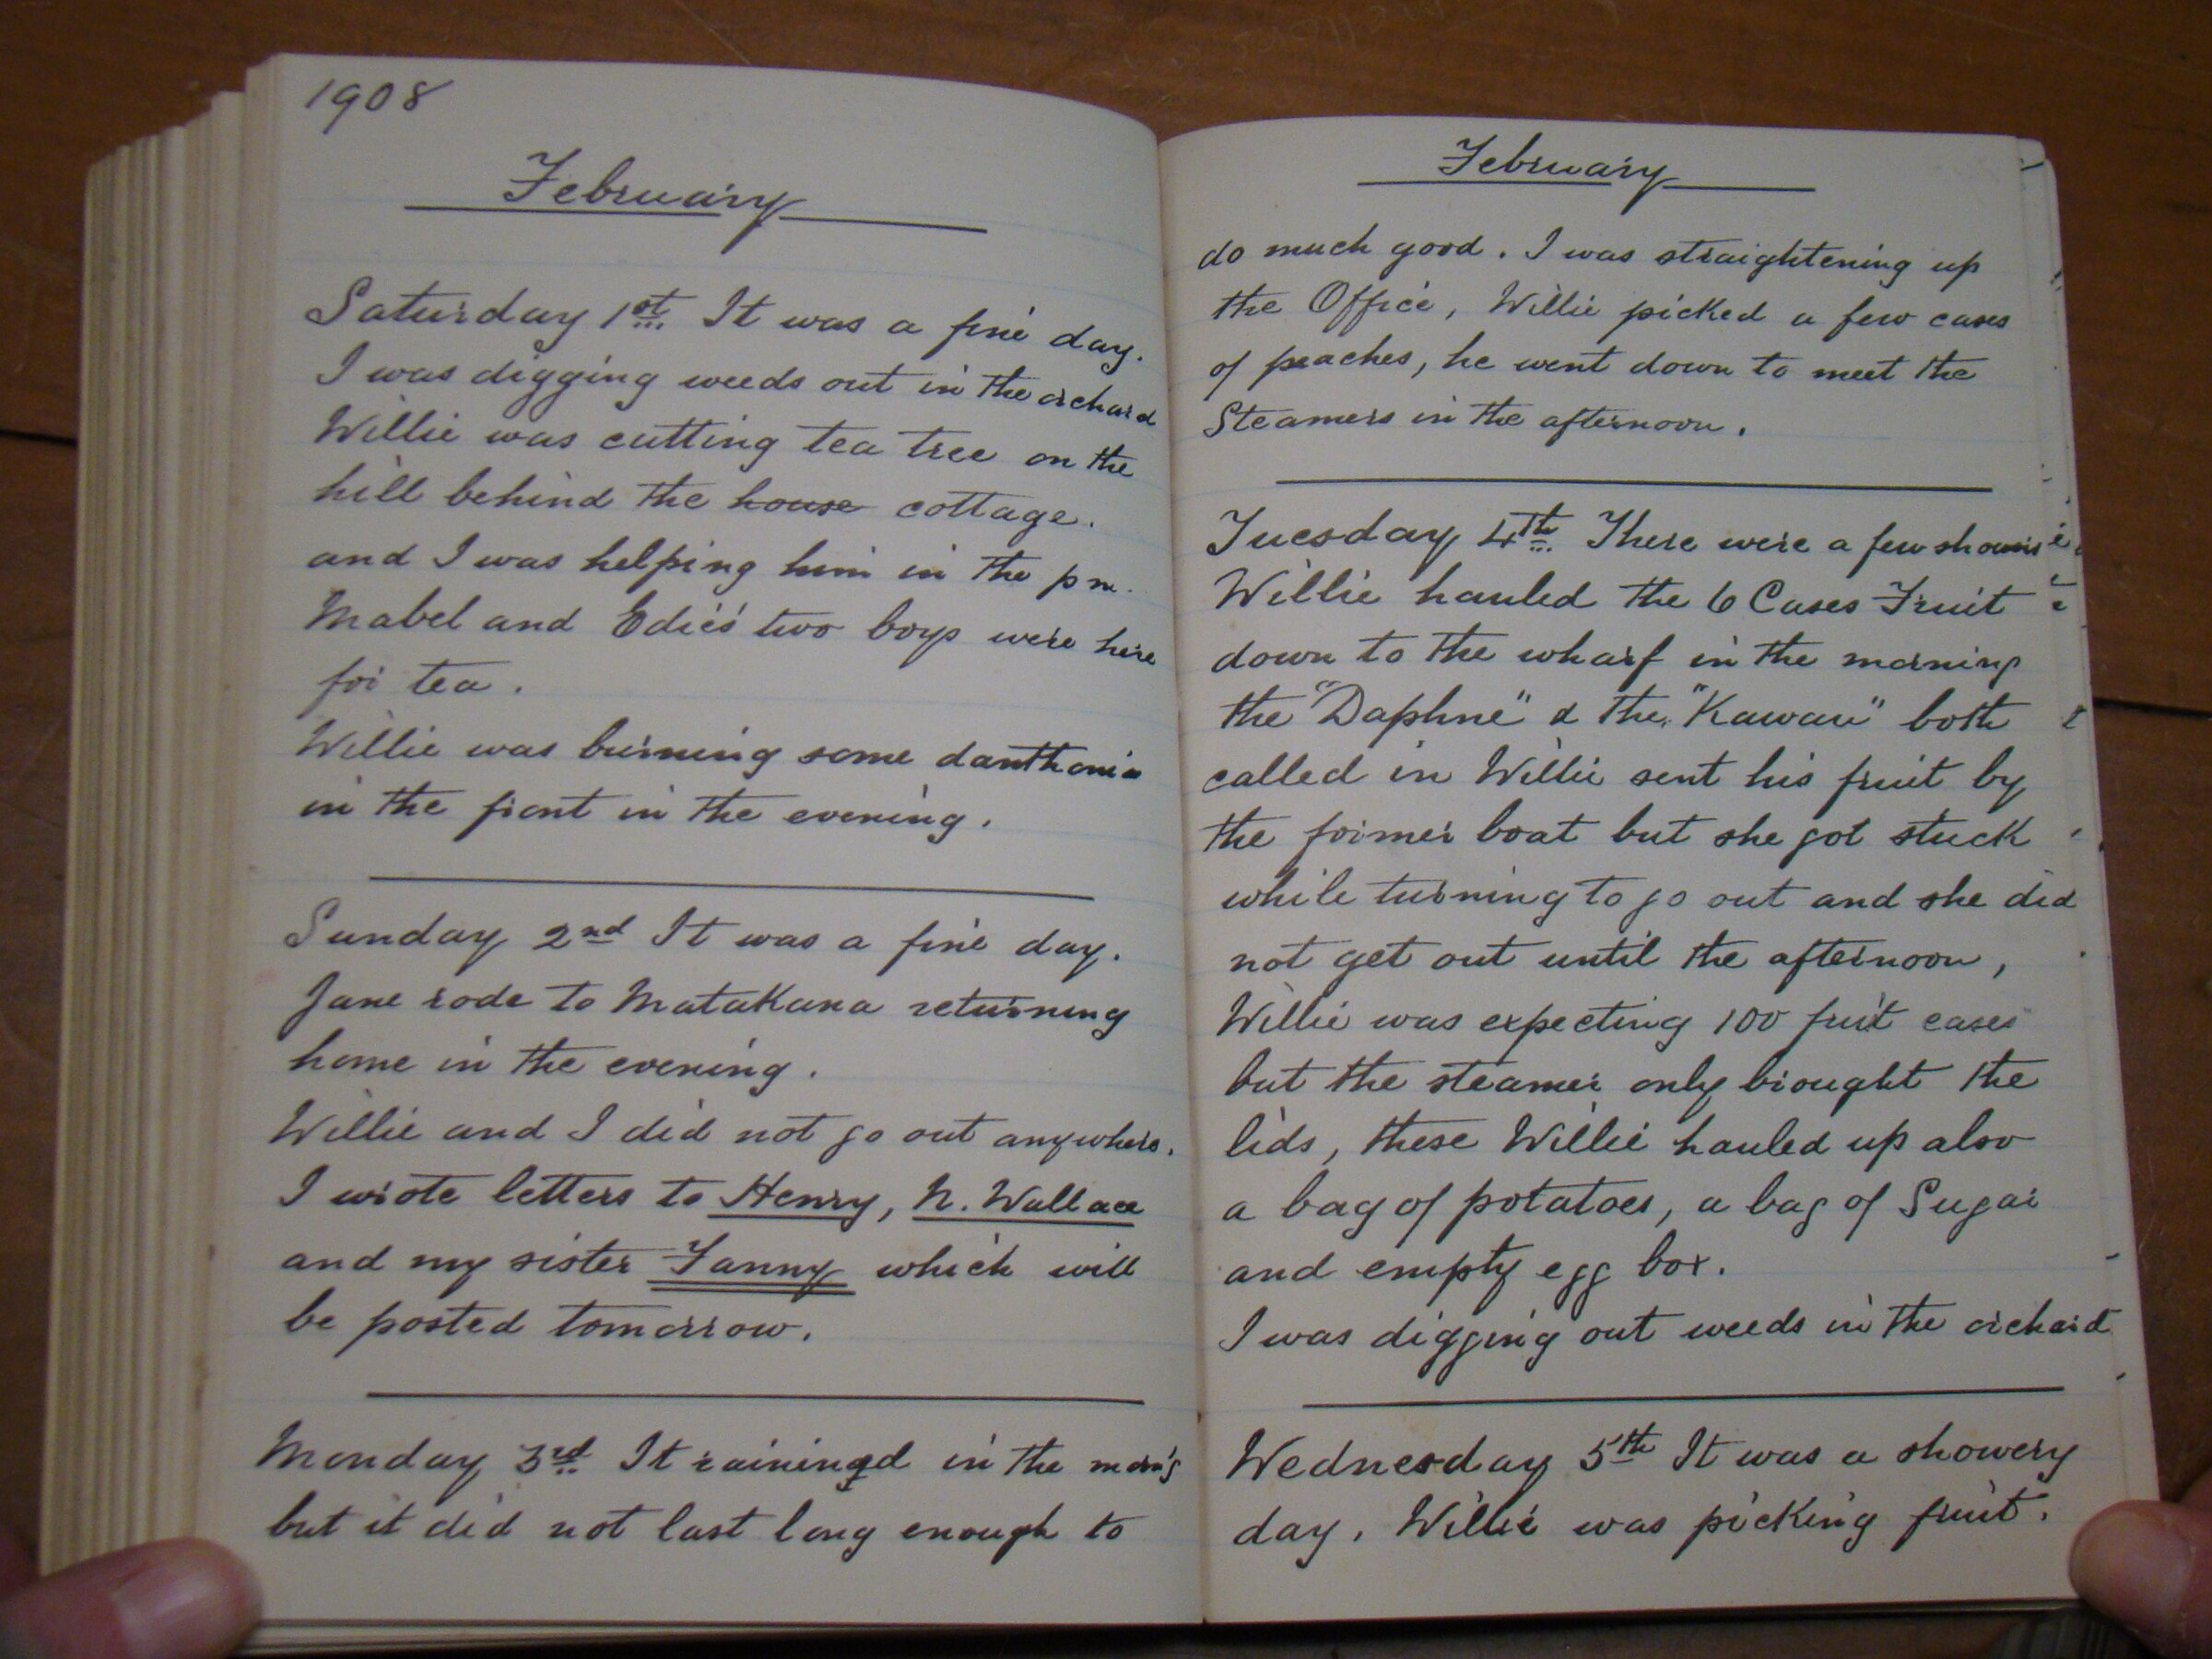 1908
February
Saturday 1st It was a fine day.
I was digging weeds out in the orchard
Willie was cutting tea tree on the
hill behind the house cottage.
and I was helping him in the pm.
Mabel and Edie's two boys were here
for tea.
Willie was burning some danthonia
in the front in the evening.
Sunday 2nd It was a fine day.
Jane rode to Matakana returning
home in the evening.
Willie and I did not go out anywhere.
I wrote letters to Henry, N. Wallace
and my sister Fanny which will
be posted tomorrow.
Monday 3rd It raininged in the morn'g
but it did not last long enough to
February
do much good. I was straightening up
the Office, Willie picked a few cases
of peaches, he went down to meet the
Steamers in the afternoon.
Tuesday 4th There were a few showers
Willie hauled the 6 Cases Fruit
down to the wharf in the morning
the "Daphne" & the "Kawau" both
called in Willie sent his fruit by
the former boat but she got stuck
while turning to go out and she did
not get out until the afternoon,
Willie was expecting 100 fruit cases
but the steamer only brought the
lids, these Willie hauled up also
a bag of potatoes, a bag of Sugar
and empty egg box.
I was digging out weeds in the orchard
Wednesday 5th It was a showery
day. Willie was picking fruit.